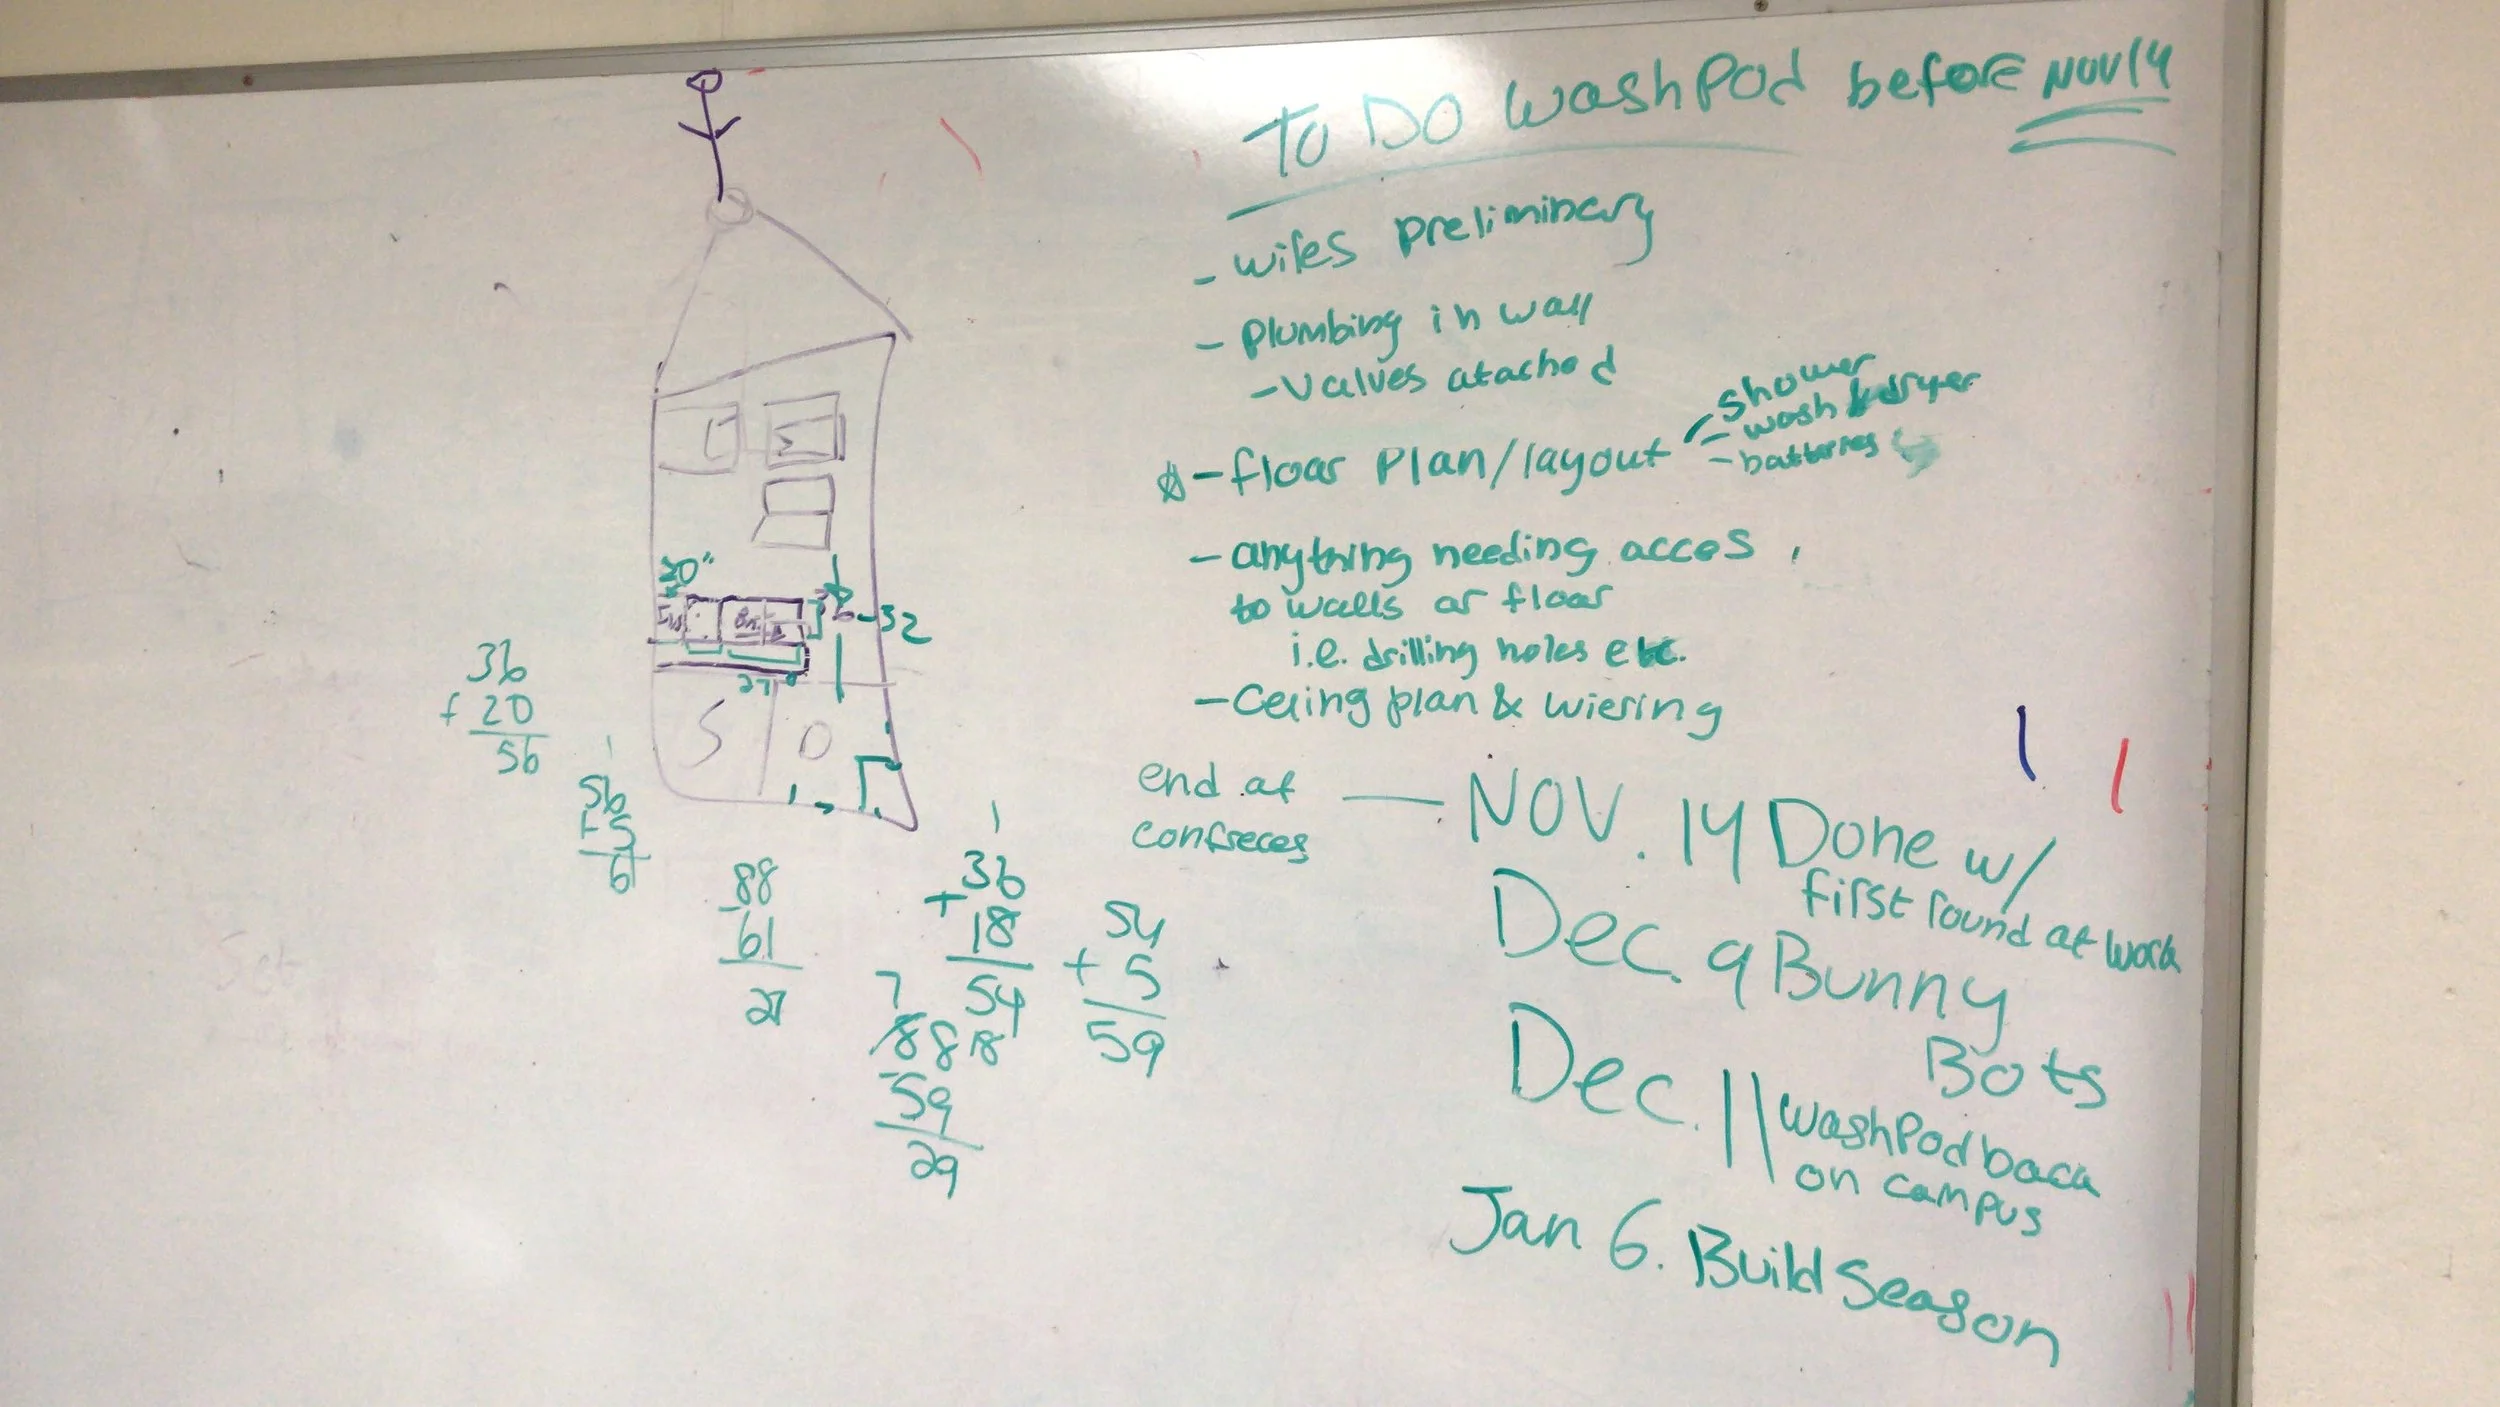 To DO washPod before NOV 14
- wires preliminary
- Plumbing in wall
- Valves atached
- floor Plan/layout
shower
- wash & dryer
- batteries
- anything needing acces
to walls or floor
i.e. drilling holes etc.
- Ceiing plan & wiering
end at
— NOV. 14 Done w/
first round at work
Dec. 9 Bunny
Bots
Dec. 11 washPod back
on campus
Jan 6. Build Season
20"
32
27"
S
D
36
+ 20
56
1
56
+ 5
61
88
- 61
27
1
36
+ 18
54
54
+ 5
59
7
8 8 18
- 59
29